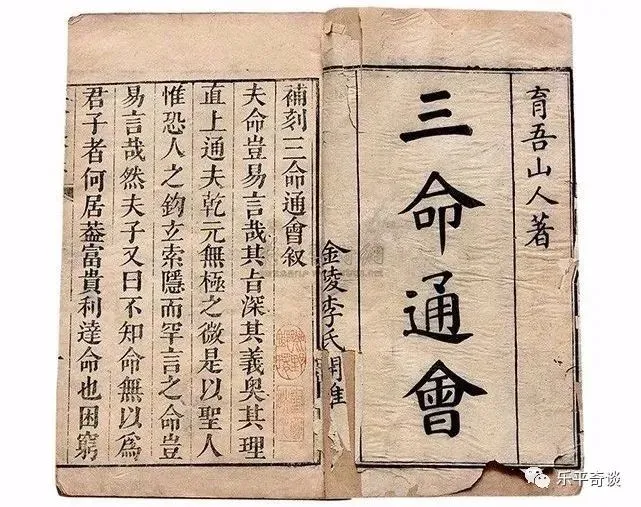 育吾山人著
三命通會
金陵李氏
補刻三命通會叙
夫命豈易言哉其㫖深其義奥其理
直上通夫乾元無極之微是以聖人
惟恐人之鈎玄索隱而罕言之命豈
易言哉然夫子又曰不知命無以爲
君子者何居葢富貴利達命也困窮
乐平奇谈